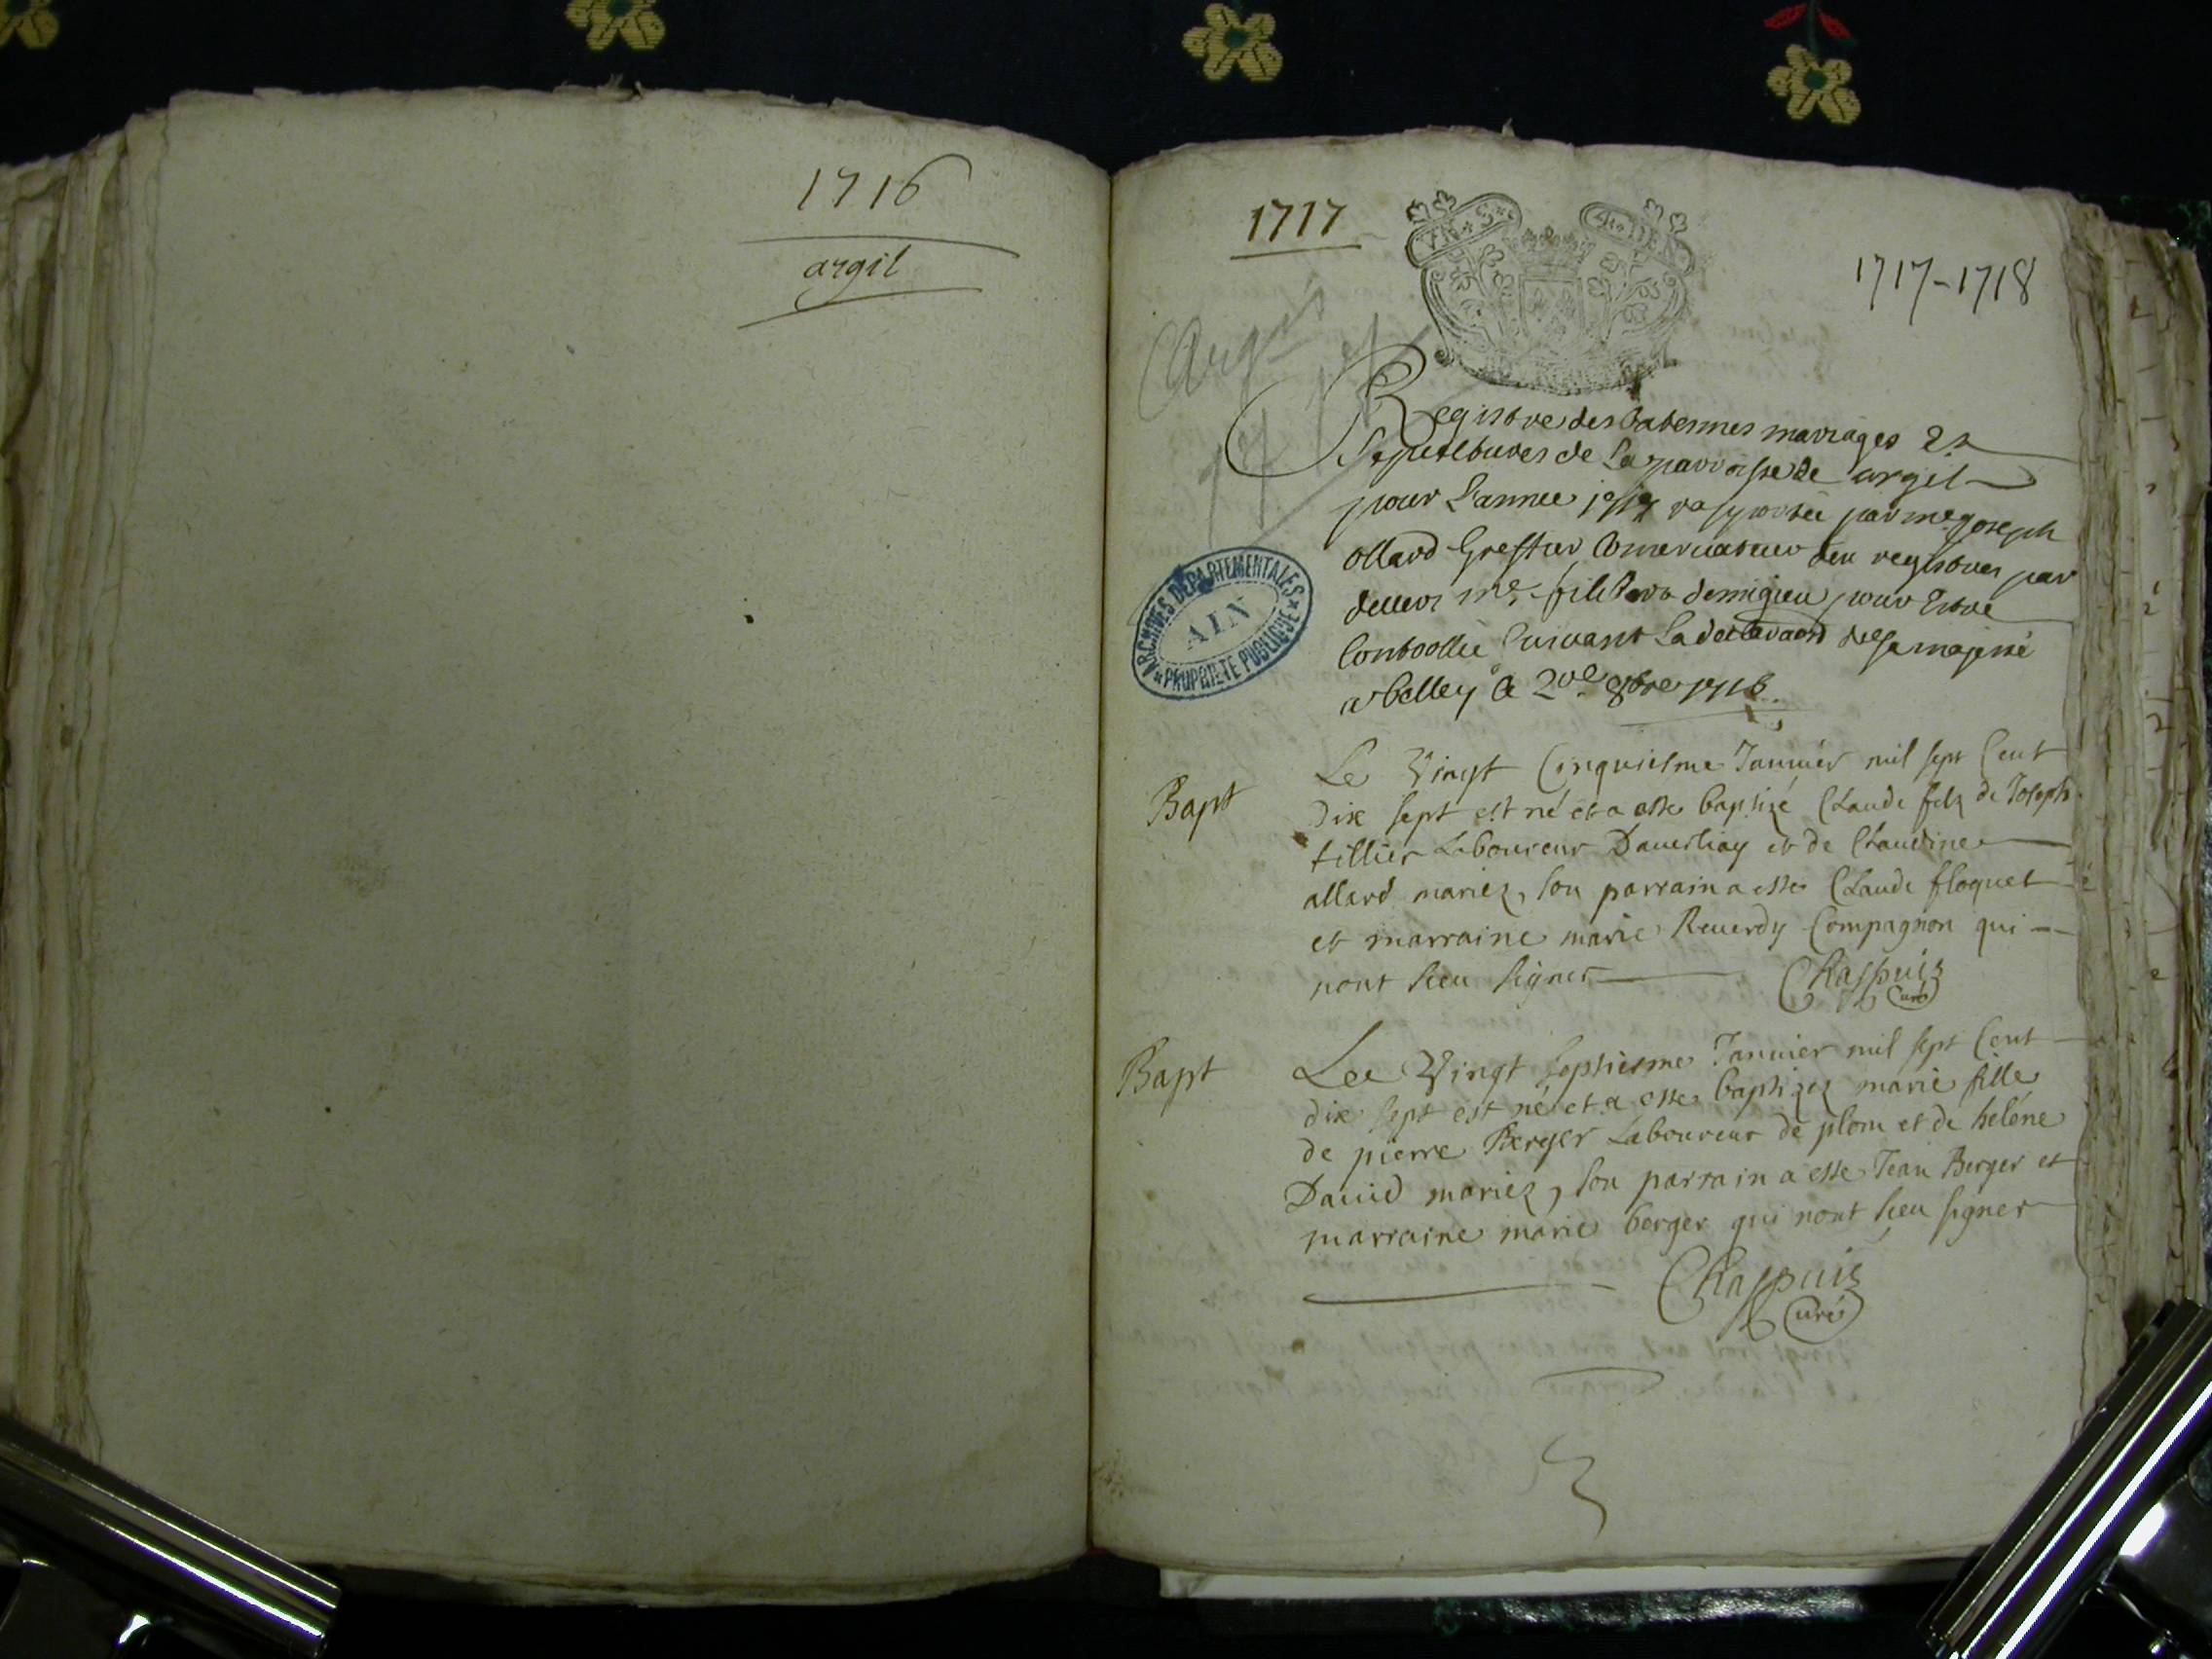 1716
argil
1717
VN S
4 DE
1717-1718
Argis
ARCHIVES DÉPARTEMENTALES
AIN
PROPRIÉTÉ PUBLIQUE
Registre des batesmes mariages Et
Sepultures de La parroisse de argil
pour L'annee 1717 par me Joseph
ollard Greffier Conservateur des registres par
devers pour Estre
Suivant La declaraon de Sa majesté
a belley le 20e 8bre 1716
Bapt
Le Vingt Cinquiesme Januier mil sept Cent
Dix sept est né et a esté baptizé Claude filz de Joseph
tillier Laboureur et de Claudine
allard mariez, son parrain a esté Claude floquet
et marraine marie Reuerdy Compagnon qui
nont sceu signer Chappuis
Curé
Bapt
Lee Vingt septiesme Januier mil sept Cent
dix sept est né et a esté baptizez marie fille
de pierre Berger Laboureur de plom et de heléne
Dauid mariez, son parrain a esté Jean Berger et
marraine marie berger qui nont sceu signer
Chappuis
Curé